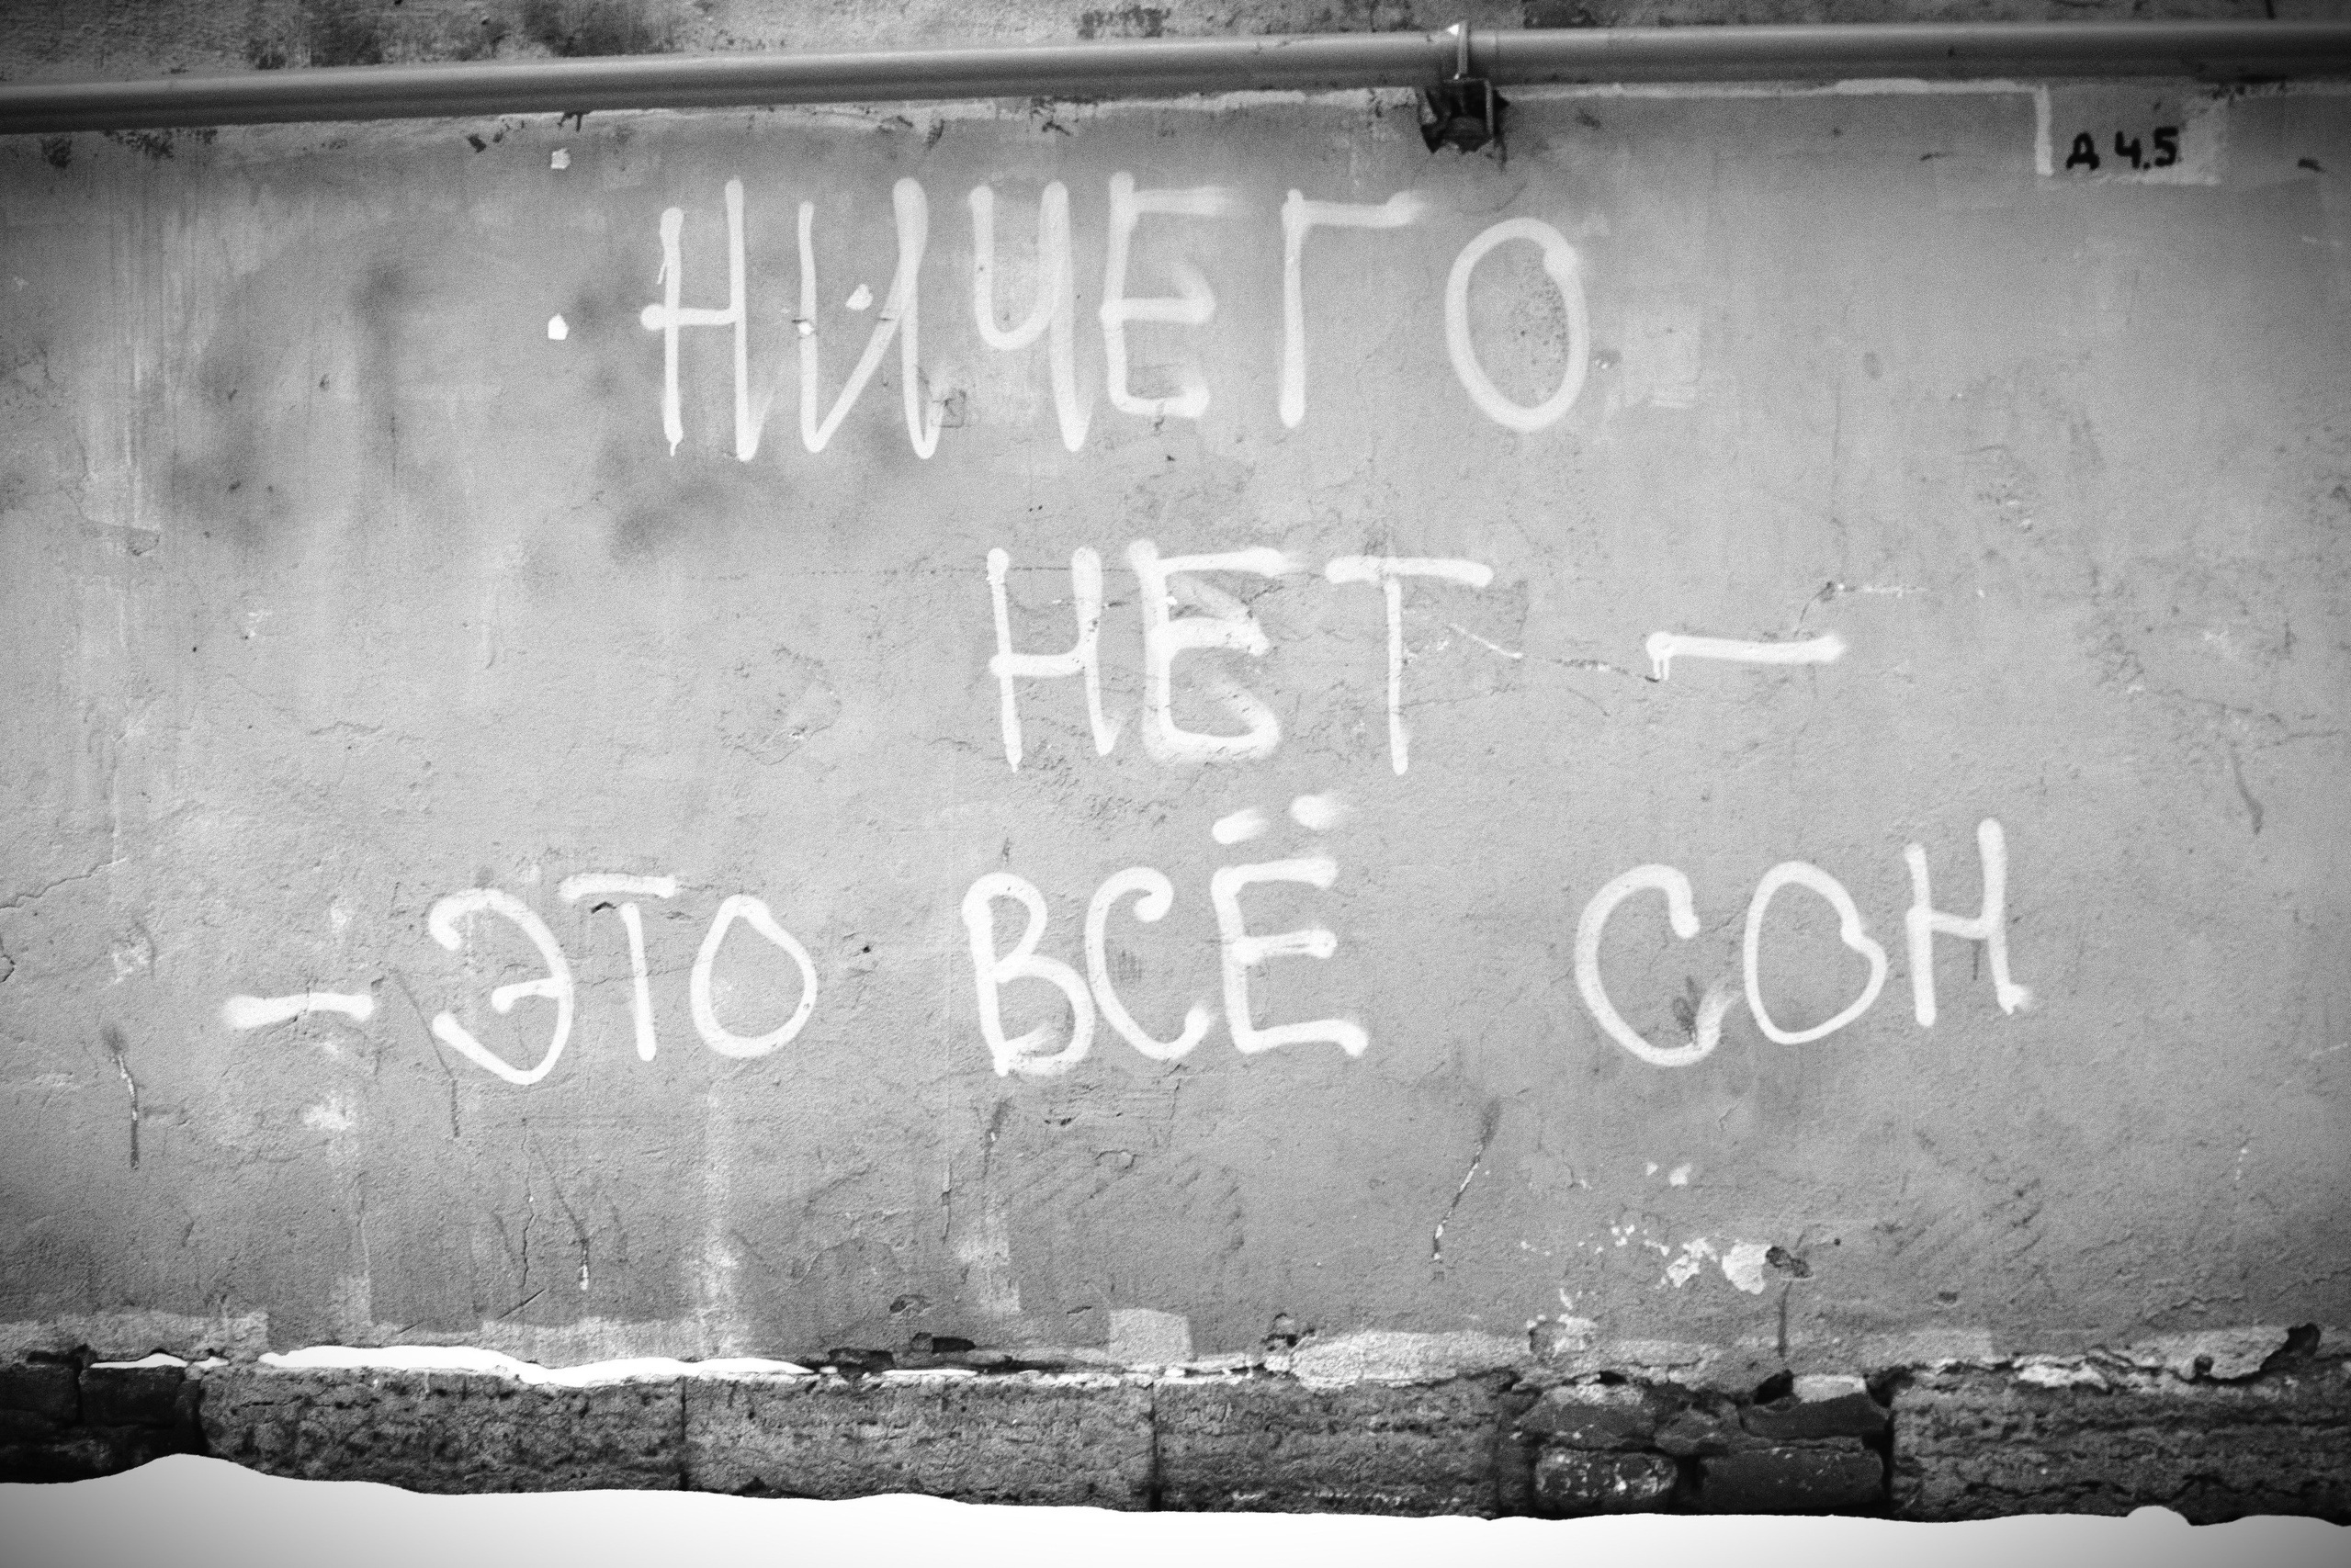 Д 4.5
НИЧЕГО
НЕТ —
— ЭТО ВСЁ СОН